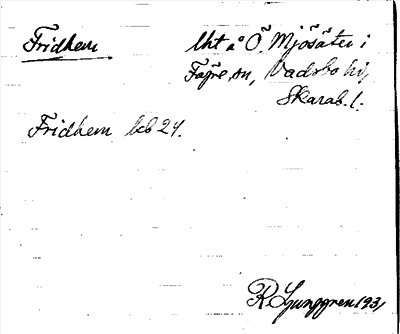 Fridhem lht å Ö. Mjösäter i
Fägre sn, Vadsbo hd,
Skarab. l.
Fridhem beb 24.
R. Ljunggren 1931